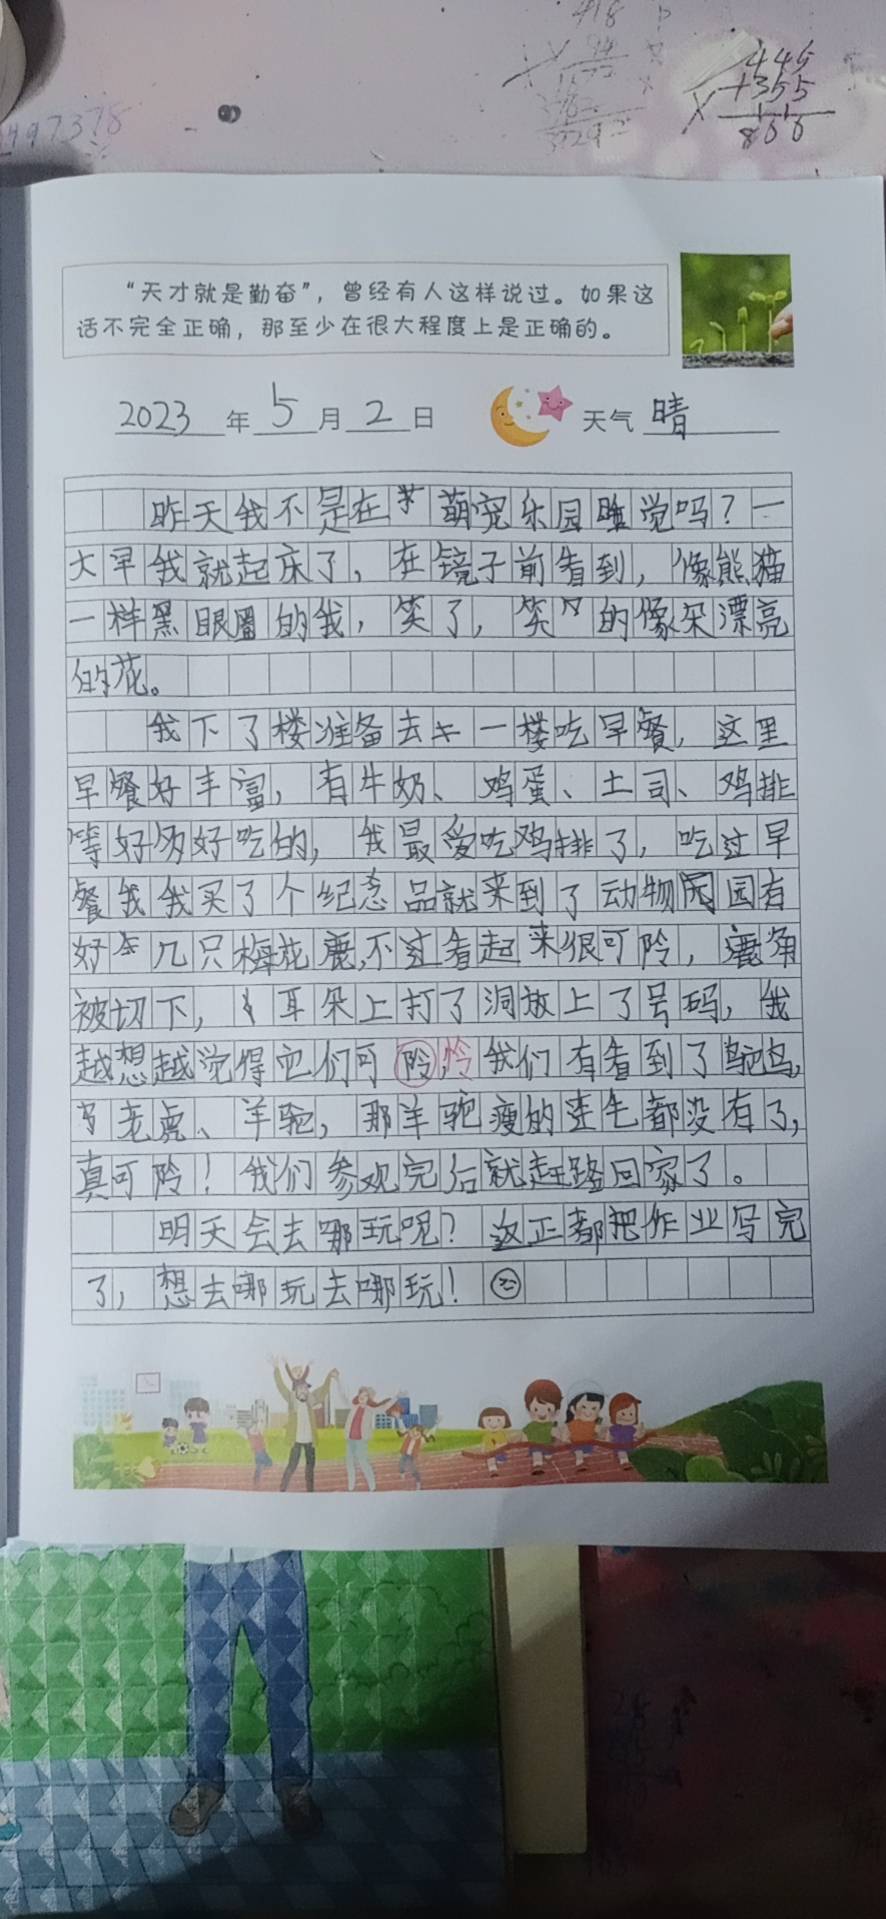 445
+355
800
497378
“天才就是勤奋”，曾经有人这样说过。如果这
话不完全正确，那至少在很大程度上是正确的。
2023年5月2日 天气 晴
昨天我不是在萌宠乐园睡觉吗？一
大早我就起床了，在镜子前看到，像熊猫
一样黑眼圈的我，笑了，笑的像朵漂亮
的花。
我下了楼准备去一楼吃早餐，这里
早餐好丰富，有牛奶、鸡蛋、土司、鸡排
等好多好吃的，我最爱吃鸡排了，吃过早
餐我我买了个纪念品就来到了动物园园有
好几只梅花鹿，不过看起来很可阾，鹿角
被切下，耳朵上打了洞放上了号码，我
越想越觉得它们可阾怜我们有看到了鸵鸟，
老虎、羊驼，那羊驼瘦的连毛都没有了，
真可阾！我们参观完后就赶路回家了。
明天会去哪玩呢？这正都把作业写完
了，想去哪玩去哪玩！